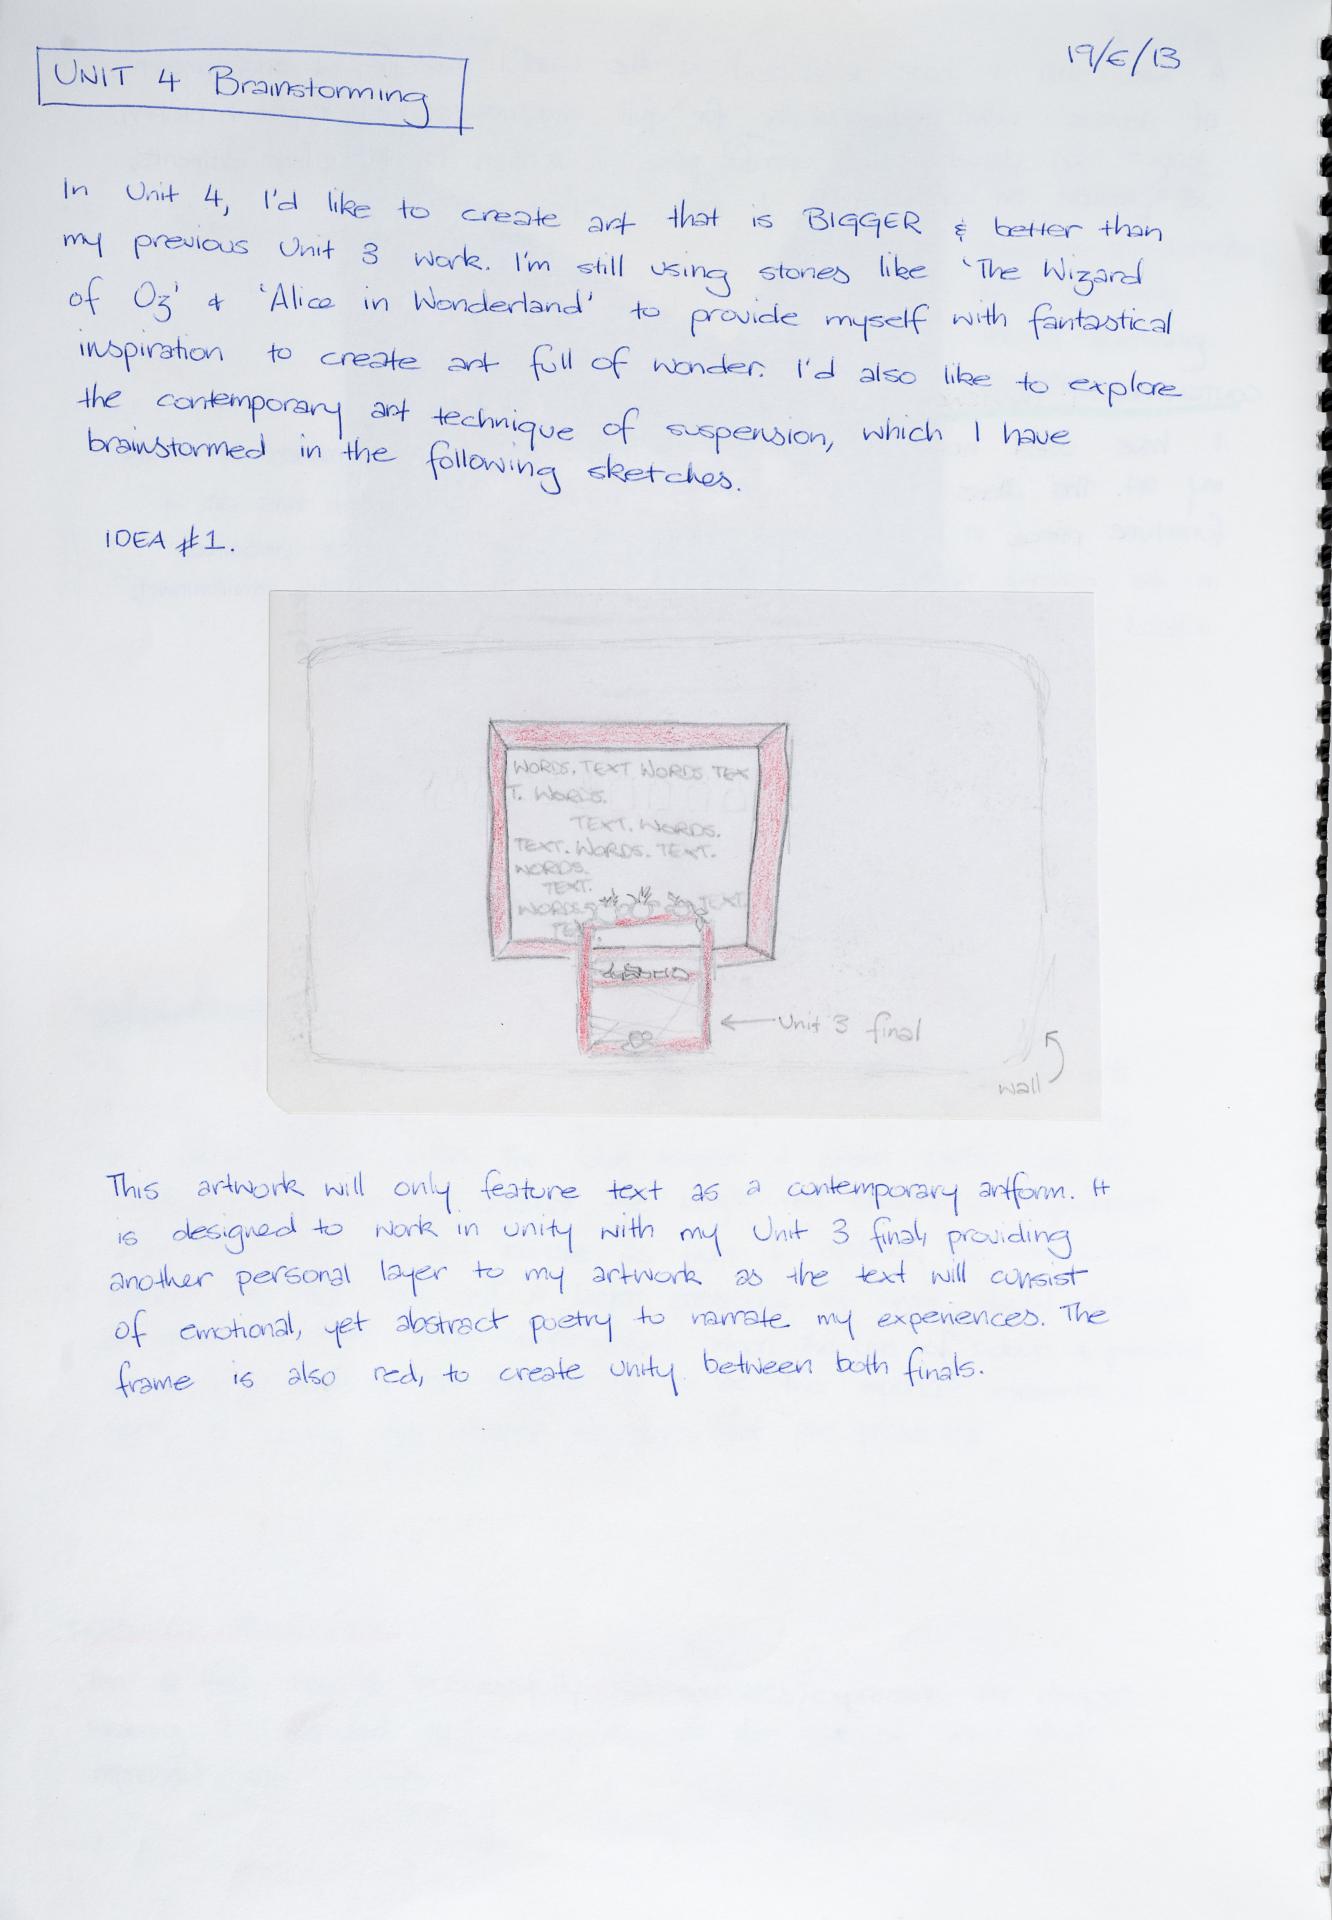 19/6/13
UNIT 4 Brainstorming
In Unit 4, I'd like to create art that is BIGGER & better than
my previous Unit 3 work. I'm still using stories like 'The Wizard
of Oz' & 'Alice in Wonderland' to provide myself with fantastical
inspiration to create art full of wonder. I'd also like to explore
the contemporary art technique of suspension, which I have
brainstormed in the following sketches.
IDEA #1.
WORDS. TEXT WORDS TEX
T. WORDS.
TEXT. WORDS.
TEXT. WORDS. TEXT.
WORDS.
TEXT.
WORDS TEXT.
TEX
Unit 3 final
wall
This artwork will only feature text as a contemporary artform. It
is designed to work in unity with my Unit 3 final, providing
another personal layer to my artwork as the text will consist
of emotional, yet abstract poetry to narrate my experiences. The
frame is also red, to create unity between both finals.